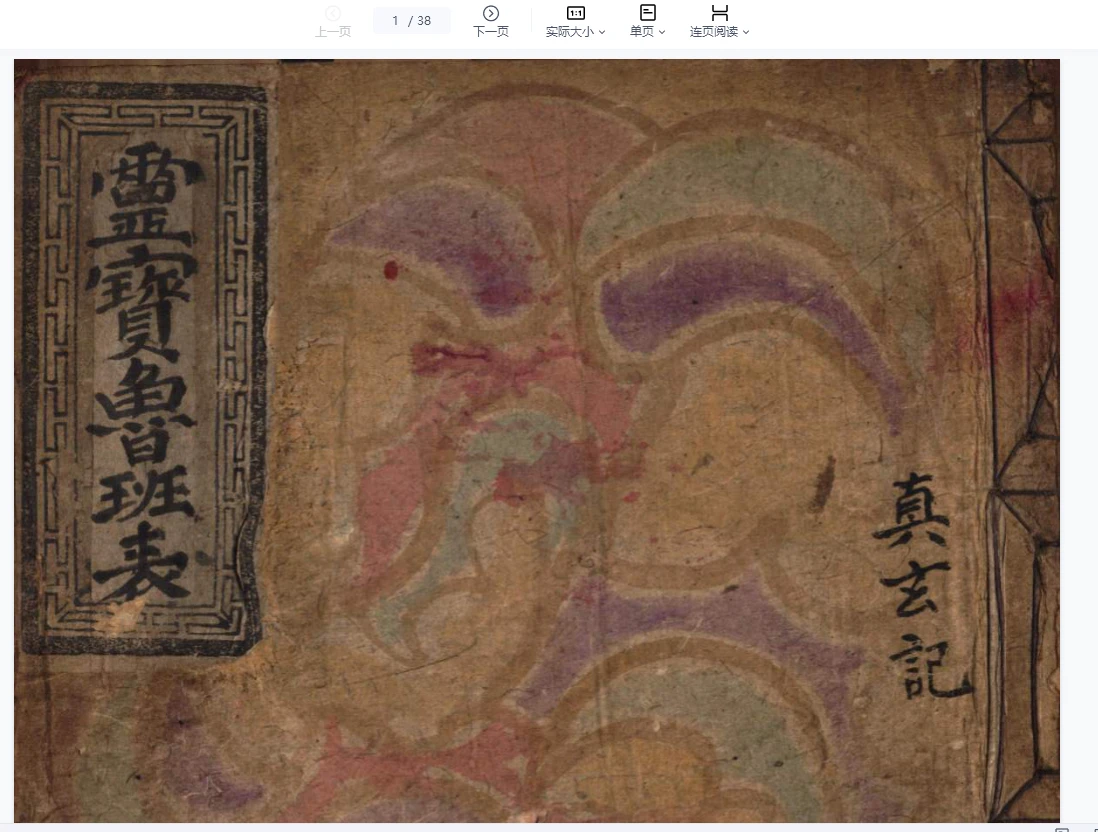 上一页
1 / 38
下一页
1:1
实际大小
单页
连页阅读
靈寶魯班表
真玄記